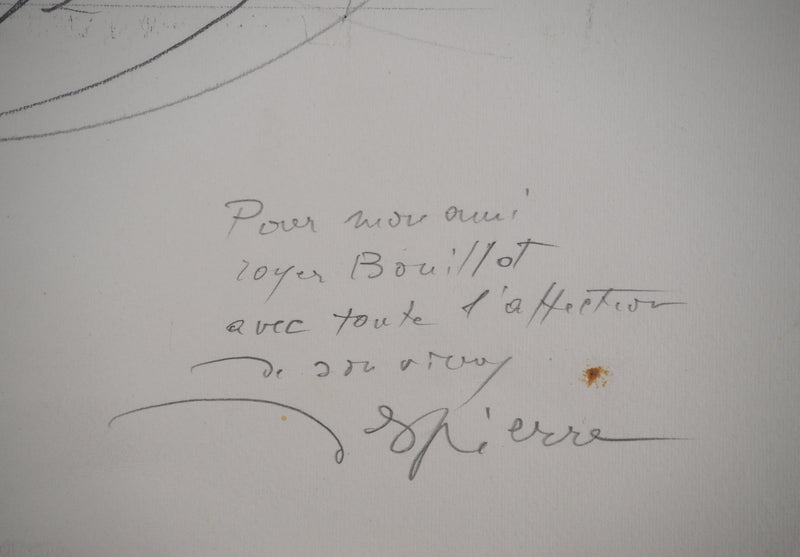 Pour mon ami
royer Bouillot
avec toute l'affection
de son vieux
Despierre